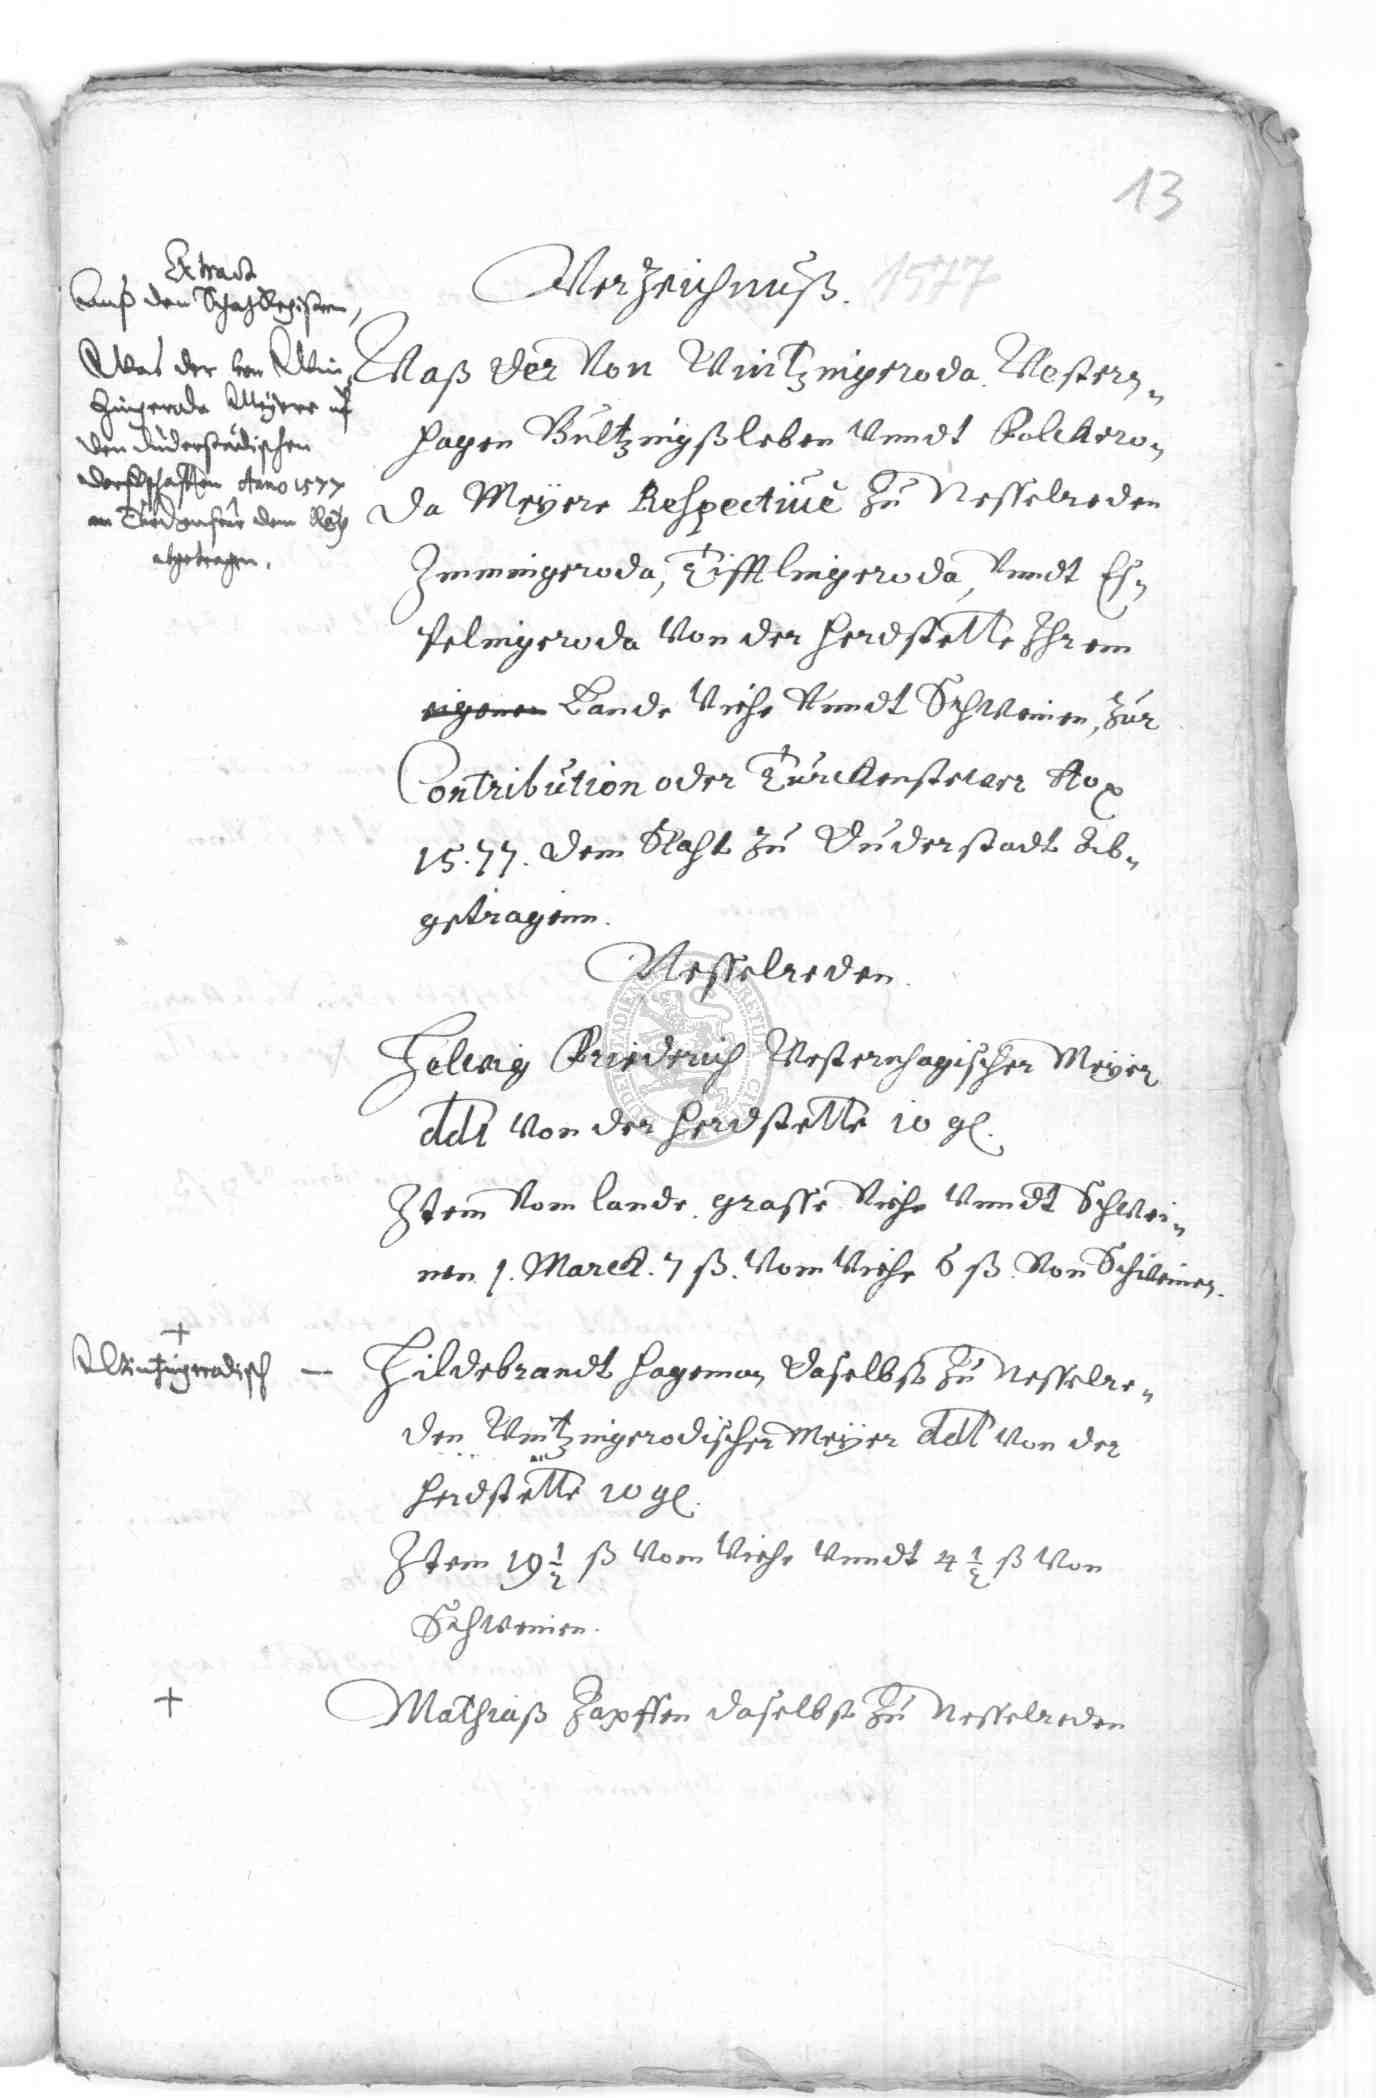 13
Extract
Auß den Schatz Registern,
Was der von Win¬
zingeroda Meyere uf
den Duderstädischen
dorfschafften Anno 1577
an Türckensteur dem Rath
abgetragen.
Verzeichnuß. 1577
Waß der Von Wintzingeroda Western¬
hagen Bültzingßleben Vnndt Bolckero¬
da Meyere Respectiuè Zu Nesselreden
Immingeroda, Tifftlingeroda, Vnndt Es¬
pelingeroda Von der Herdstette Ihrem
eigenen Lande Viehe Vnndt Schweinen, Zur
Contribution oder Türckensteuer Ao
1577. dem Raht Zu Duderstadt Ab¬
getragenn.
Nesselreden.
Helwig Friederich Westernhagischer Meyer
ddt Von der Herdstette 10 gl.
Item Vom lande, grasse Viehe Vnndt Schwei¬
nen 1. Marck. 7 ß. Vom Viehe 6 ß. Von Schweinen.
+
Wintzingerodisch —
Hildebrandt Hageman daselbst Zu Nesselre¬
den Wintzingerodischer Meyer ddt Von der
Herdstette 10 gl.
Item 19 1/2 ß Vom Viehe Vnndt 4 1/2 ß Von
Schweinen.
+
Mathiaß Zapffen daselbst Zu Nesselreden